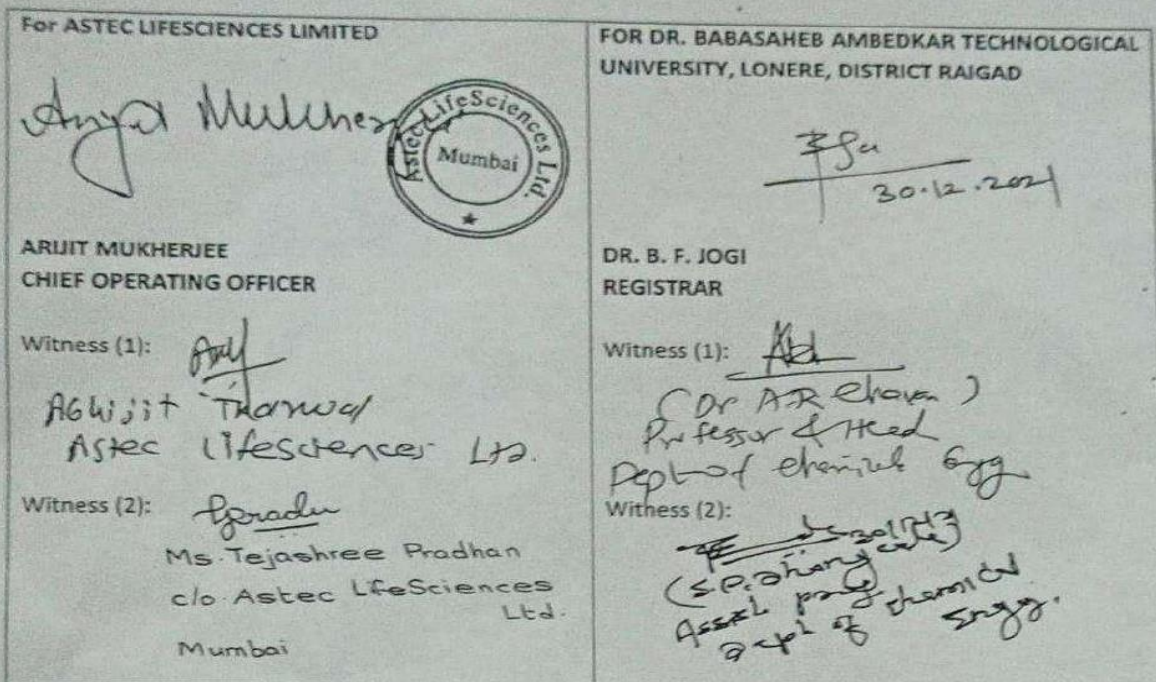 For ASTEC LIFESCIENCES LIMITED
Mukher
Astec LifeSciences Ltd.
Mumbai
ARIJIT MUKHERJEE
CHIEF OPERATING OFFICER
Witness (1):
Abhijit Thorwal
Astec Lifesciences Ltd.
Witness (2):
Pradhan
Ms. Tejashree Pradhan
c/o Astec LifeSciences
Ltd.
Mumbai
FOR DR. BABASAHEB AMBEDKAR TECHNOLOGICAL
UNIVERSITY, LONERE, DISTRICT RAIGAD
30.12.2021
DR. B. F. JOGI
REGISTRAR
Witness (1):
(Dr A.R Chavan)
Professor & Head
Dept of Chemical Engg
Witness (2):
(S.P.
Asst prof
Dept of chemical
Engg.